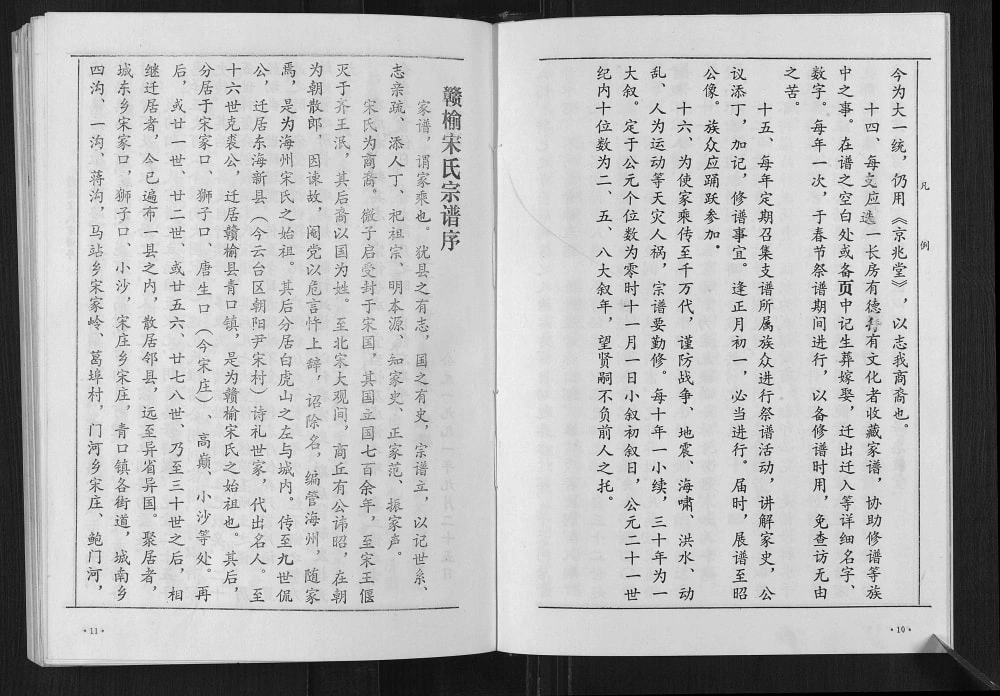 凡例
今为大一统，仍用《京兆堂》，以志我商裔也。
十四、每支应选一长房有德者有文化者收藏家谱，协助修谱等族
中之事。在谱之空白处或备页中记生葬嫁娶，迁出迁入等详细名字、
数字。每年一次，于春节祭谱期间进行，以备修谱时用，免查访无由
之苦。
十五、每年定期召集支谱所属族众进行祭谱活动，讲解家史，公
议添丁，加记，修谱事宜。逢正月初一，必当进行。届时，展谱至昭
公像。族众应踊跃参加。
十六、为使家乘传至千万代，谨防战争、地震、海啸、洪水、动
乱、人为运动等天灾人祸，宗谱要勤修。每十年一小续，三十年为一
大叙。定于公元个位数为零时十一月一日小叙初叙日，公元二十一世
纪内十位数为二、五、八大叙年，望贤嗣不负前人之托。
·10·
赣榆宋氏宗谱序
家谱，谓家乘也。犹县之有志，国之有史，宗谱立，以记世系、
志亲疏、添人丁、祀祖宗、明本源、知家史、正家范、振家声。
宋氏为商裔。微子启受封于宋国，其国立国七百余年，至宋王偃
灭于齐王泯，其后裔以国为姓。至北宋大观间，商丘有公讳昭，在朝
为朝散郎，因谏故，阉党以危言忤上辞，诏除名，编管海州，随家
焉，是为海州宋氏之始祖。其后分居白虎山之左与城内。传至九世侃
公，迁居东海新县（今云台区朝阳尹宋村）诗礼世家，代出名人。至
十六世克裘公，迁居赣榆县青口镇，是为赣榆宋氏之始祖也。其后，
分居于宋家口、狮子口、唐生口（今宋庄）、高巅、小沙等处。再
后，或廿一世、廿二世、或廿五六、廿七八世、乃至三十世之后，相
继迁居者，今已遍布一县之内，散居邻县，远至异省异国。聚居者，
城东乡宋家口，狮子口、小沙，宋庄乡宋庄，青口镇各街道，城南乡
四沟、一沟、蒋沟，马站乡宋家岭、葛埠村，门河乡宋庄、鲍门河，
·11·